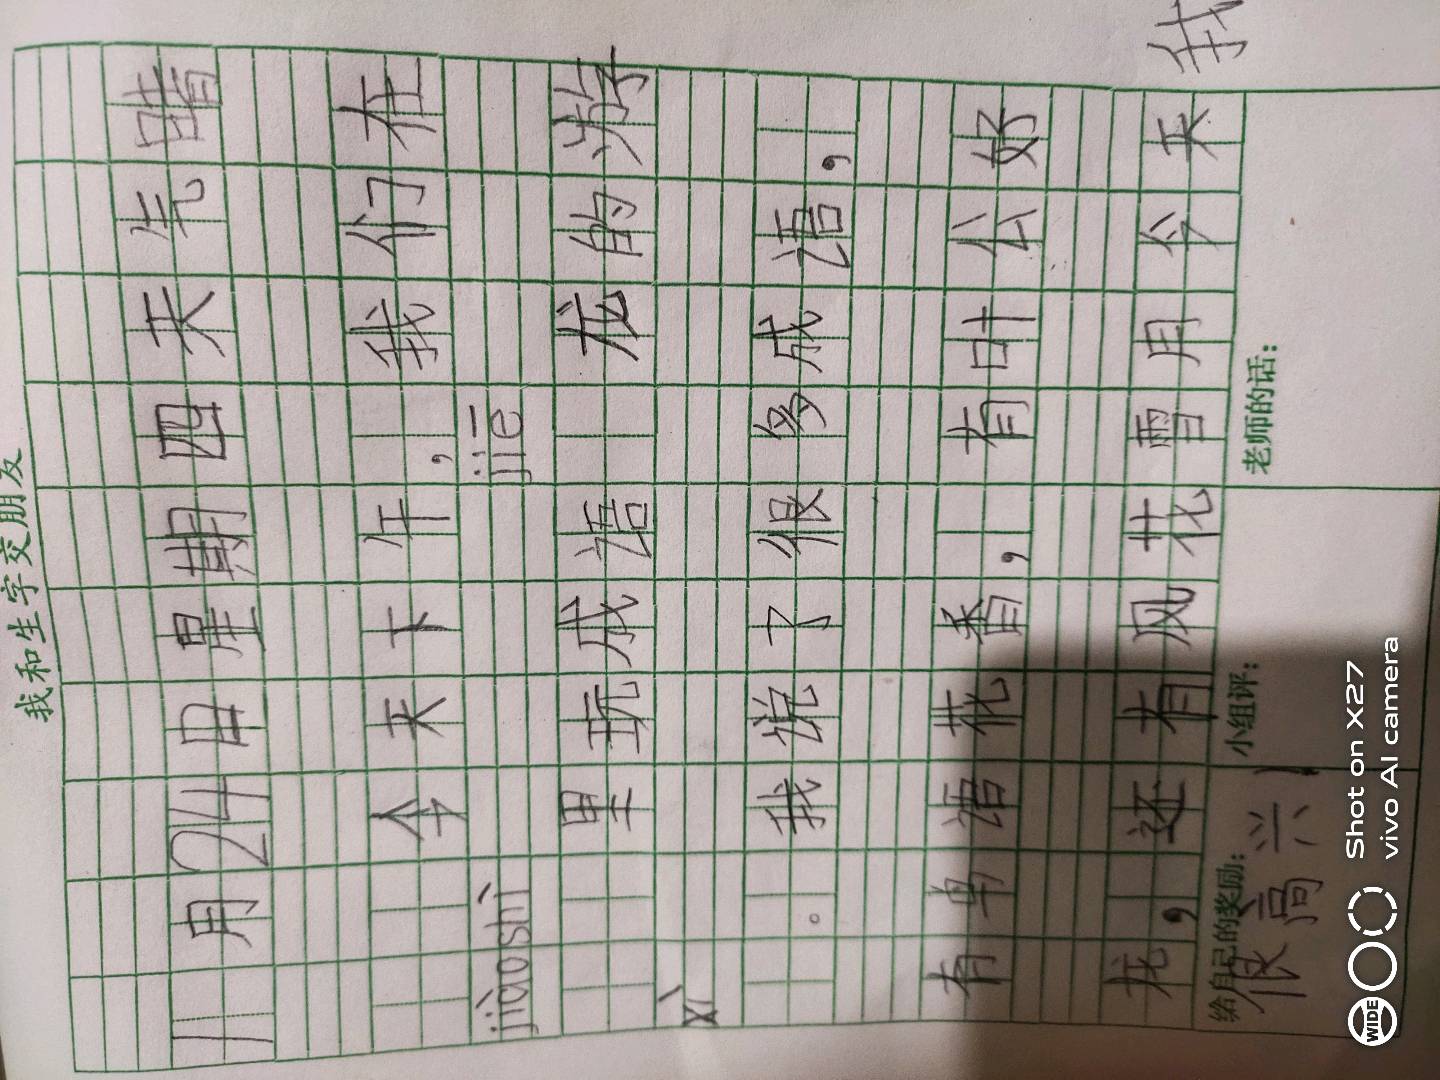 我和生字交朋友
1月24日星期四天气晴
今天下午，我们在
jiàoshì jiē
里玩成语 龙的游
xì
。我说了很多成语，
有鸟语花香，有叶公好
龙，还有风花雪月今天
给自己的奖励： 小组评： 老师的话：
很高兴！
我
Shot on X27
vivo AI camera
WIDE